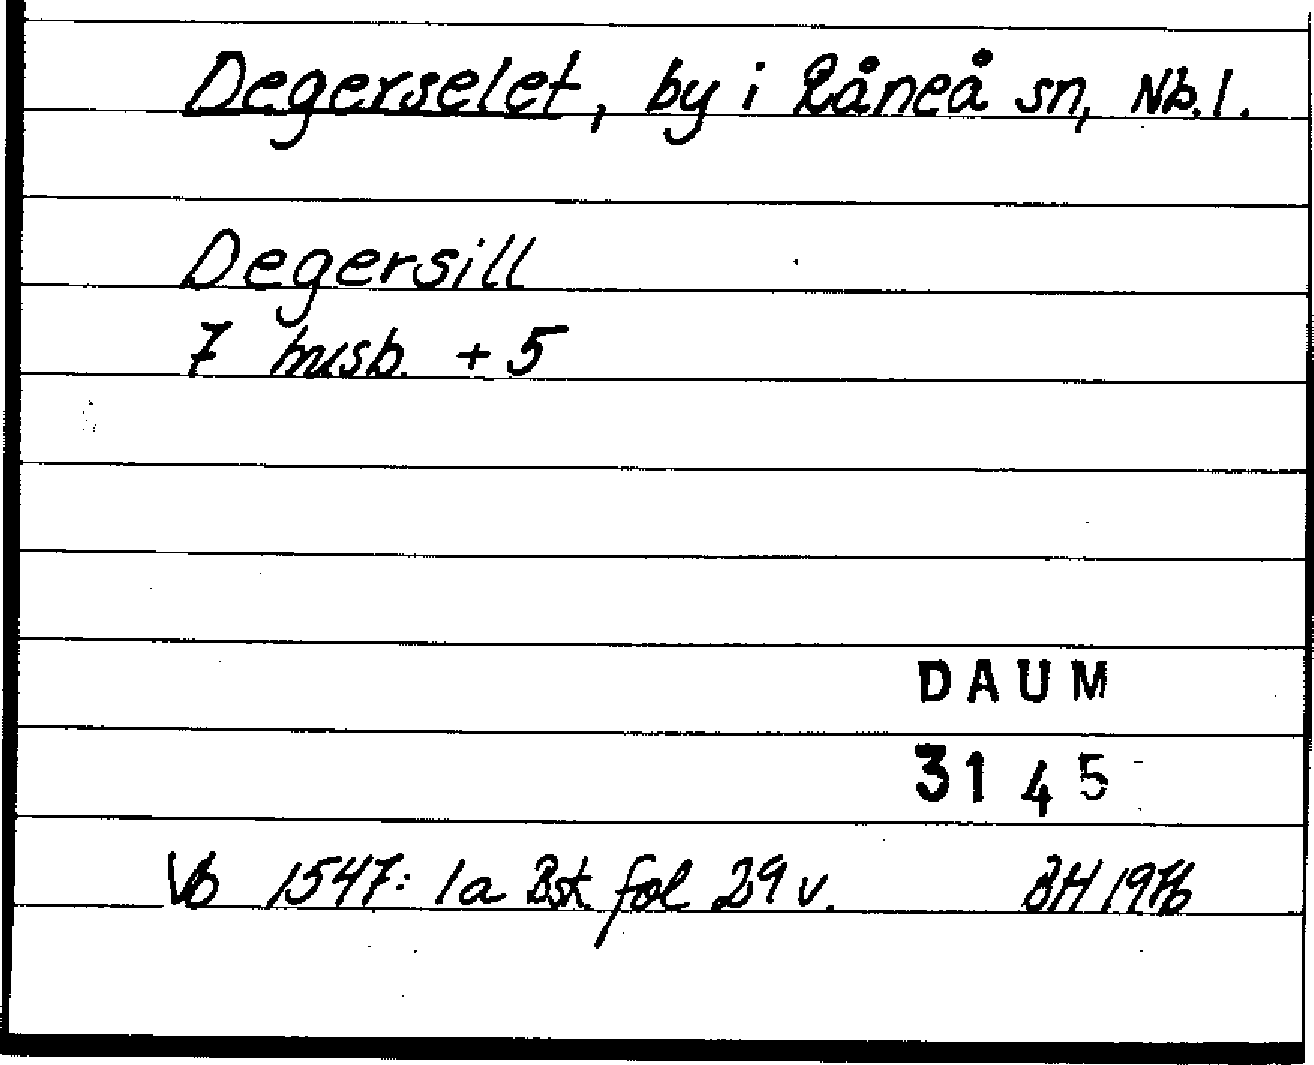 Degerselet, by i Råneå sn, Nb.l.
Degersill
7 husb. + 5
DAUM
3145
Vb 1547: 1a Bst. fol 29 v. BH 1976